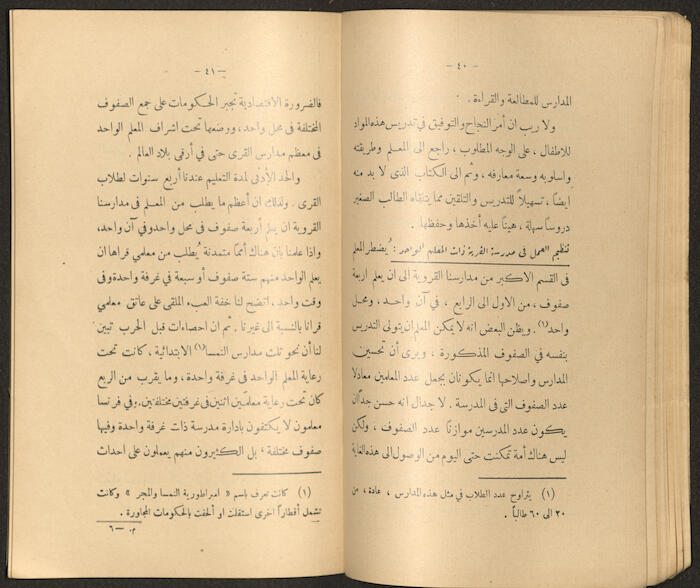 — ٤٠ —
المدارس للمطالعة والقراءة .
ولا ريب ان أمر النجاح والتوفيق في تدريس هذه المواد
للاطفال ، على الوجه المطلوب ، راجع الى المعلم وطريقته
واسلوبه وسعة معارفه ، وثم الى الكتاب الذى لا بد منه
ايضاً ، تسهيلاً للتدريس والتلقين مما يتلقاه الطالب الصغير
دروساً سهلة ، هيناً عليه أخذها وحفظها .
تنظيم العمل فى مدرسة القرية ذات المعلم الواحد : يُضطر المعلم
فى القسم الاكبر من مدارسنا القروية الى ان يعلم اربعة
صفوف ، من الاول الى الرابع ، في آن واحد ، ومحل
واحد (١) . ويظن البعض انه لا يمكن المعلم ان يتولى التدريس
بنفسه في الصفوف المذكورة ، ويرى أن تحسين
المدارس واصلاحها انما يكونان بجعل عدد المعلمين معادلا
عدد الصفوف التى فى المدرسة . لا جدال انه حسن جداً ان
يكون عدد المدرسين موازناً عدد الصفوف ، ولكن
ليس هناك أمة تمكنت حتى اليوم من الوصول الى هذه الغاية
(١) يتراوح عدد الطلاب في مثل هذه المدارس ، عادة ، من
٢٠ الى ٦٠ طالباً .
— ٤١ —
فالضرورة الاقتصادية تجبر الحكومات على جمع الصفوف
المختلفة في محل واحد ، ووضعها تحت اشراف المعلم الواحد
فى معظم مدارس القرى حتى في أرقى بلاد العالم .
والحد الأدنى لمدة التعليم عندنا أربع سنوات لطلاب
القرى . ولذلك ان أعظم ما يطلب من المعلم فى مدارسنا
القروية ان يعلم أربعة صفوف فى محل واحد وفي آن واحد ،
واذا علمنا بان هناك أمماً متمدنة يُطلب من معلمي قراها ان
يعلم الواحد منهم ستة صفوف أو سبعة في غرفة واحدة وفى
وقت واحد ، اتضح لنا خفة العبء الملقى على عاتق معلمي
قرانا بالنسبة الى غيرنا . ثم ان احصاءات قبل الحرب تبين
لنا أن نحو ثلث مدارس النمسا (١) الابتدائية ، كانت تحت
رعاية المعلم الواحد فى غرفة واحدة ، وما يقرب من الربع
كان تحت رعاية معلمين اثنين فى غرفتين مختلفتين . وفي فرنسا
معلمون لا يكتفون بادارة مدرسة ذات غرفة واحدة وفيها
صفوف مختلفة ، بل الكثيرون منهم يعملون على احداث
(١) كانت تعرف باسم « امبراطورية النمسا والمجر » وكانت
تشمل أقطاراً اخرى استقلت او ألحقت بالحكومات المجاورة .
م — ٦